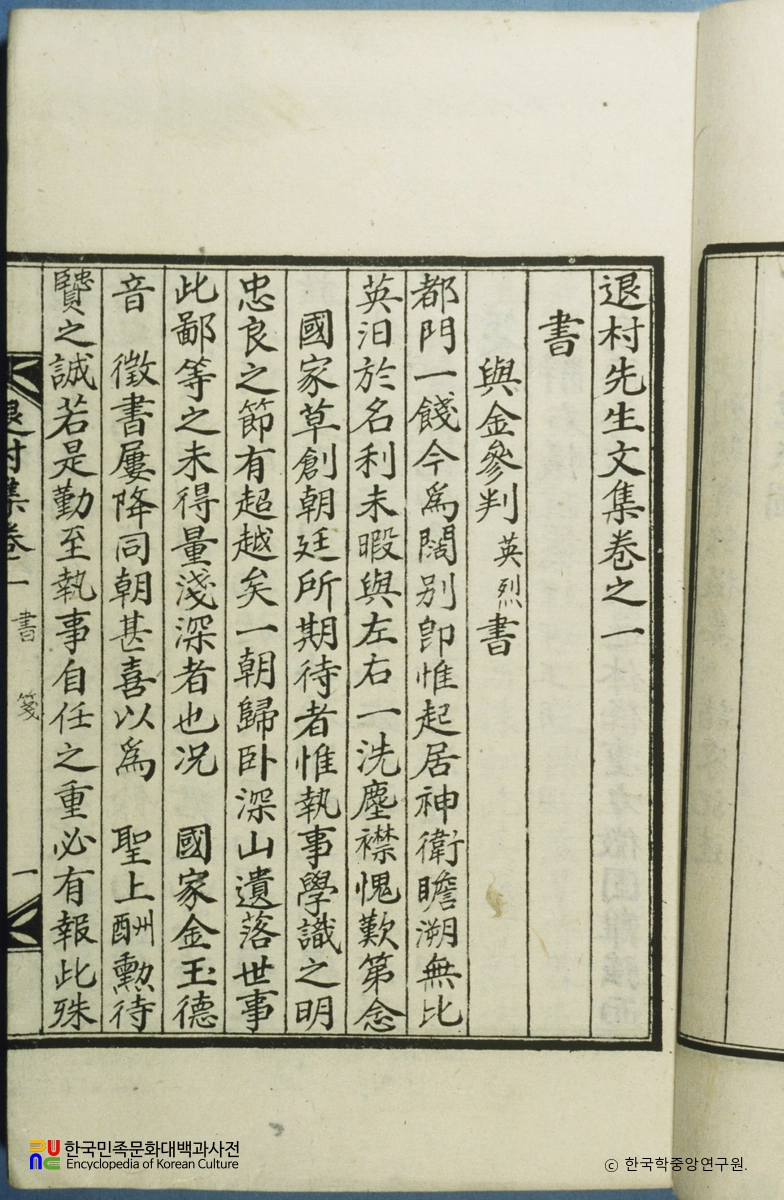 退村先生文集卷之一
書
與金參判英烈書
都門一餞今爲闊别卽惟起居神衛瞻溯無比
英汨於名利未暇與左右一洗塵襟愧歎第念
國家草創朝廷所期待者惟執事學識之明
忠良之節有超越矣一朝歸卧深山遺落世事
此鄙等之未得量淺深者也况 國家金玉德
音 徵書屢降同朝甚喜以爲 聖上酬勲待
賢之誠若是勤至執事自任之重必有報此殊
退村集卷一 書 箋 一
한국민족문화대백과사전
Encyclopedia of Korean Culture
ⓒ 한국학중앙연구원.